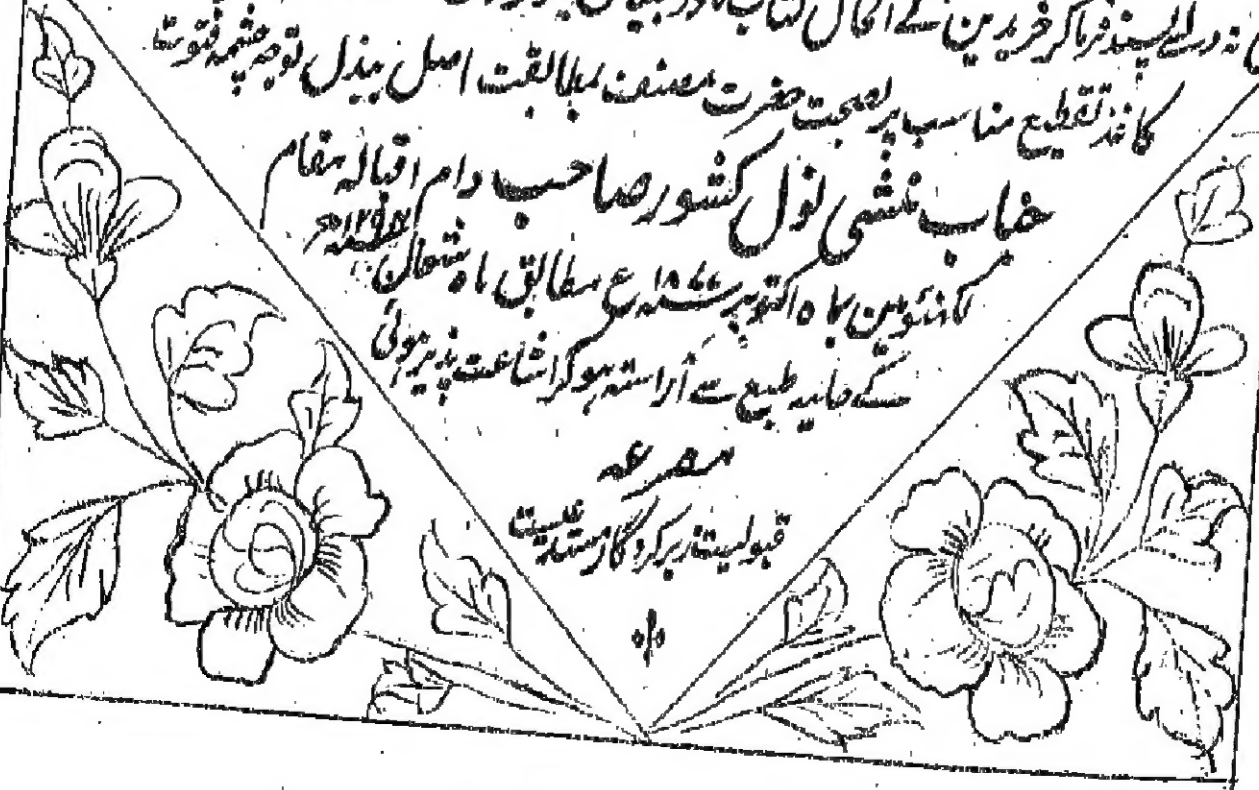 نہ دراے پسند فرما کر خریدین گے الحال کتاب
کاغذ تقطیع مناسب پر بصحت حضرت مصنف بمطابقت اصل ببذل توجہ چشمۂ فتوت
جناب منشی نول کشور صاحب دام اقبالہ بمقام
کانپور بین بماہ اکتوبر ۱۸۷۷ ع مطابق ماہ شوال
کے حلیہ طبع سے آراستہ ہو کر اشاعت پذیر ہوئی
مصرعہ
قبولیتش بر کردگار